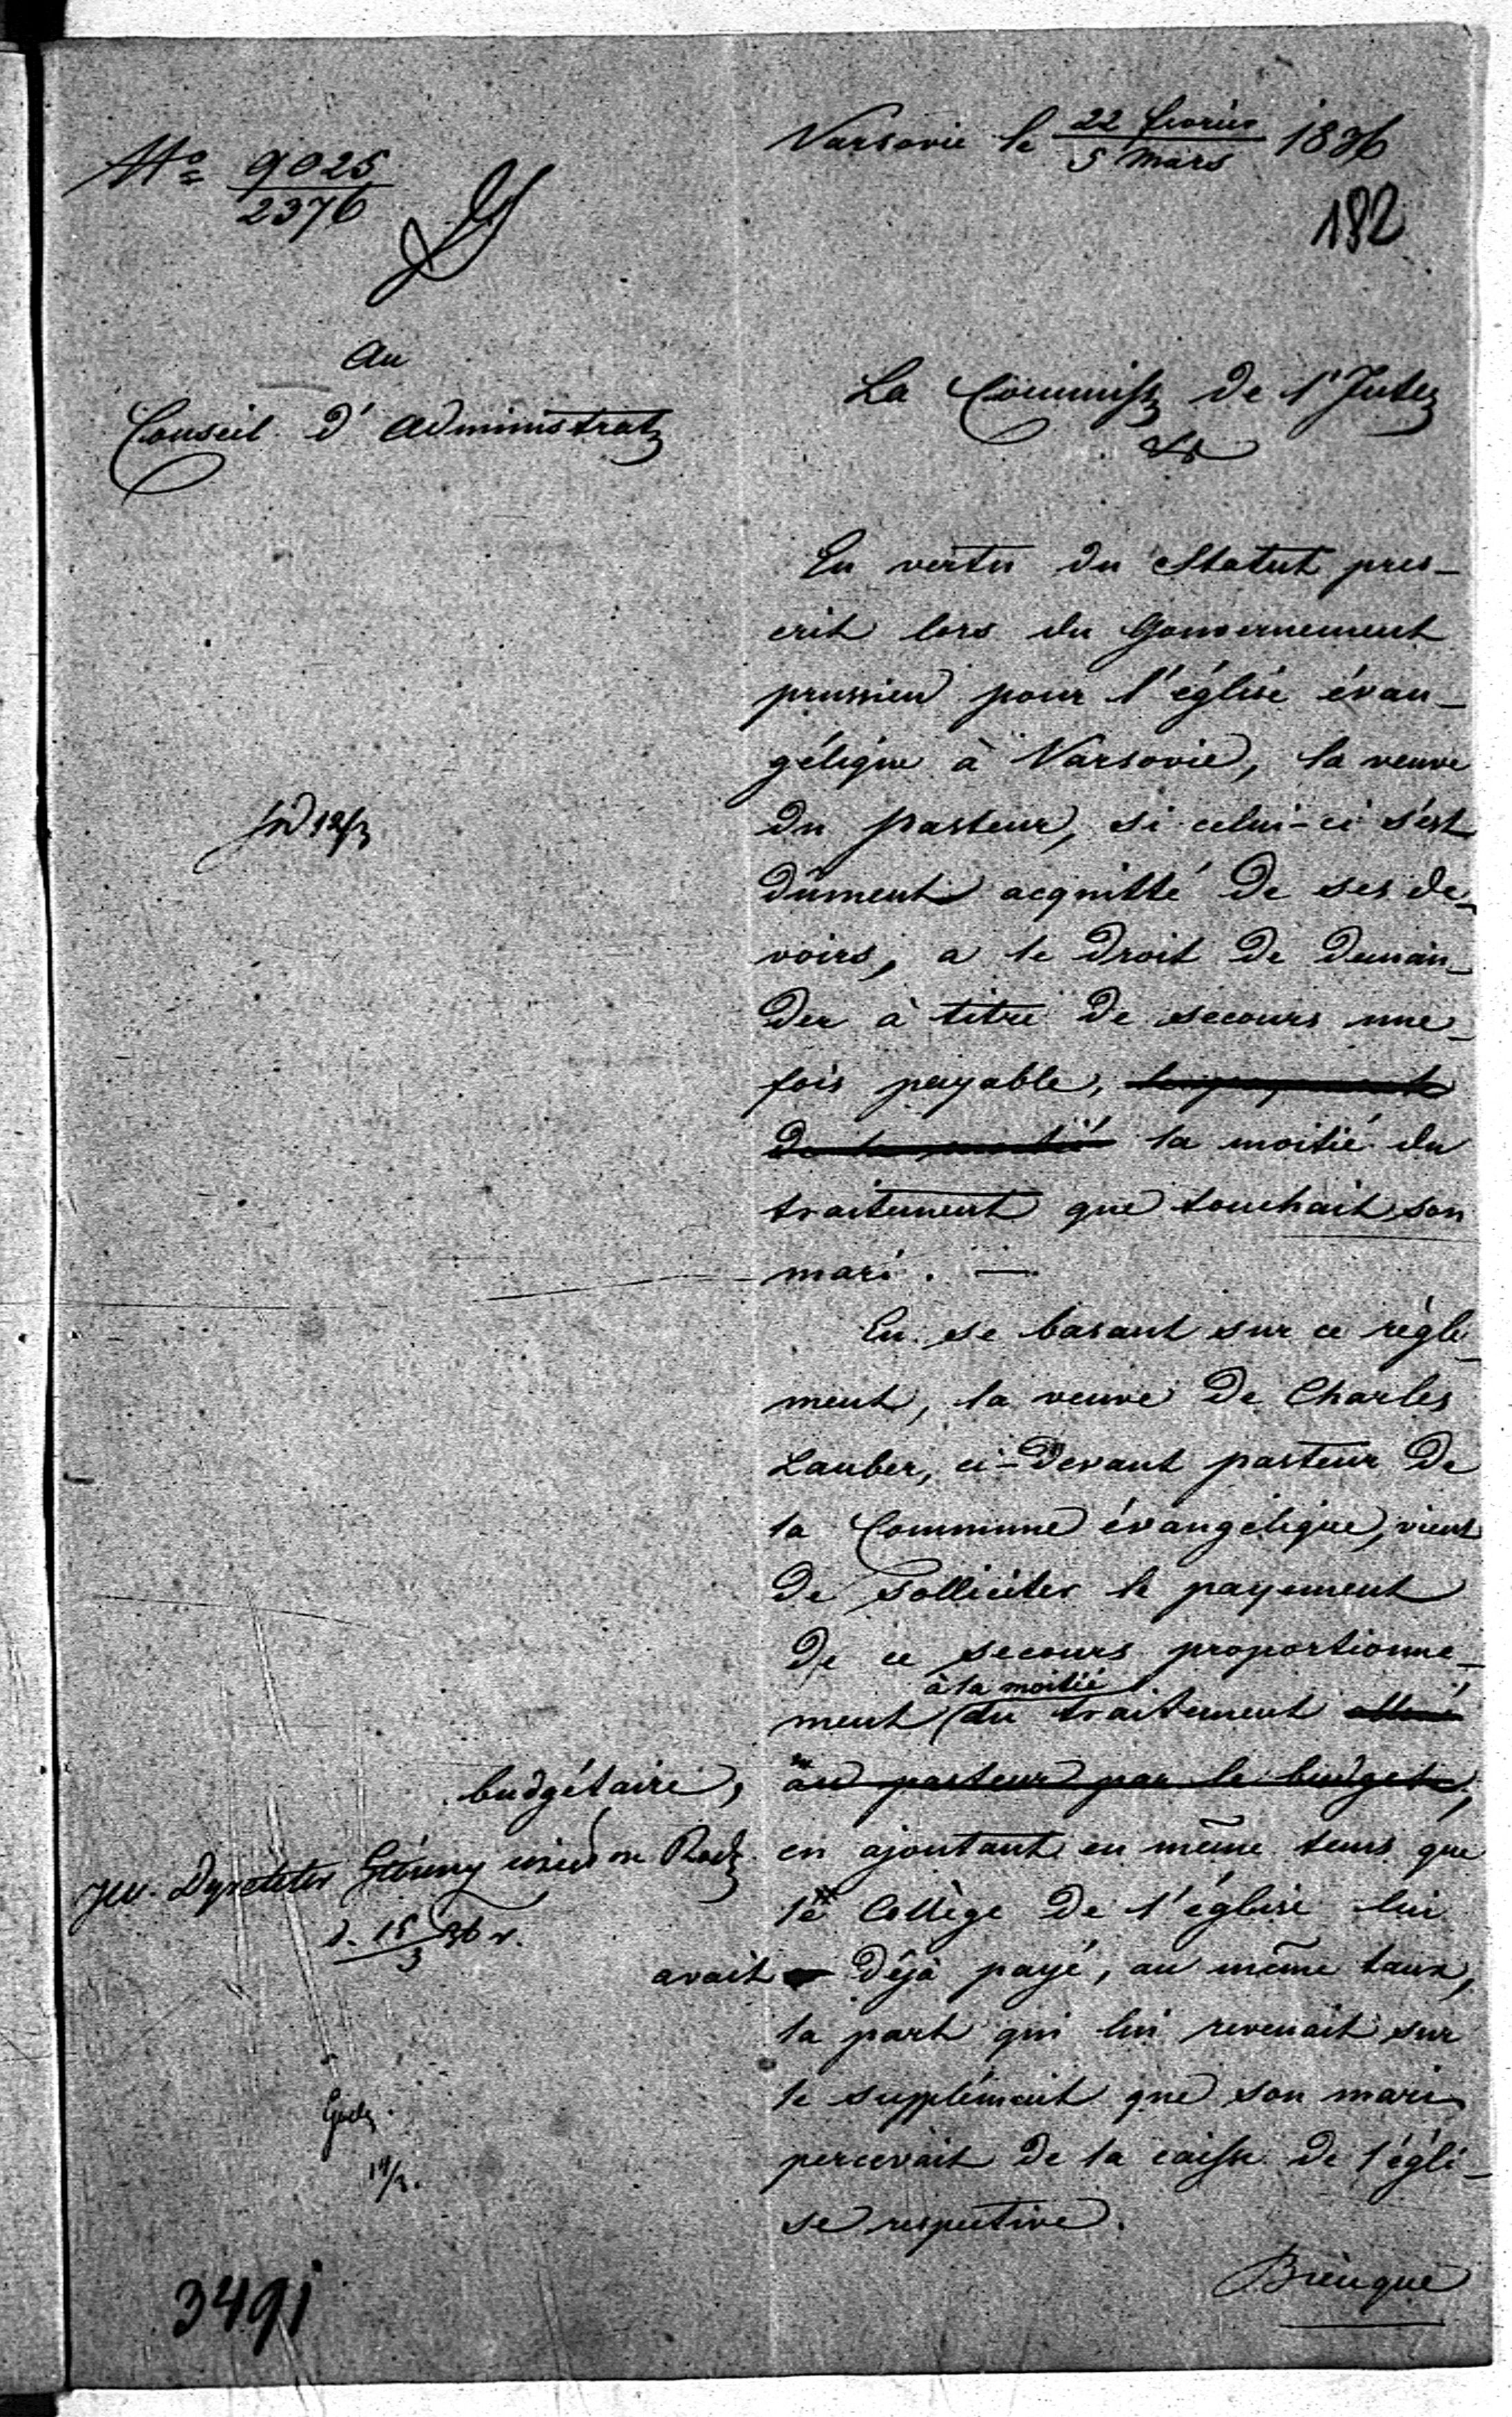 No 9025
2376
Varsovie le 22 fevrier
5 Mars 1836
182
Au
Conseil d'Administrat
La Commiss de l'Inter
En vertu du Statut pres-
crit lors du Gouvernement
prussien pour l'église évan-
géliqüe à Varsovie, la veuve
du pasteur, si celui-ci s'est
dûment acquitté de ses de-
voirs, a le droit de deman-
der à titre de secours une
fois payable, le payement
de la moitié la moitié du
traitement que touchait son
mari. —
En se basant sur ce régle-
ment, la veuve de Charles
Lauber, ci-devant pasteur de
la Commune évangélique, vient
de solliciter le payement
de ce secours proportionne-
à la moitié
ment du traitement alloué
budgétaire, au pasteur par le budget,
en ajoutant en même tems que
le Collège de l'église lui
avait déjà payé, au même taux,
la part qui lui revenait sur
le supplément que son mari
percevait de la caisse de l'égli-
se respective.
d. 15/3 36 r.
3491